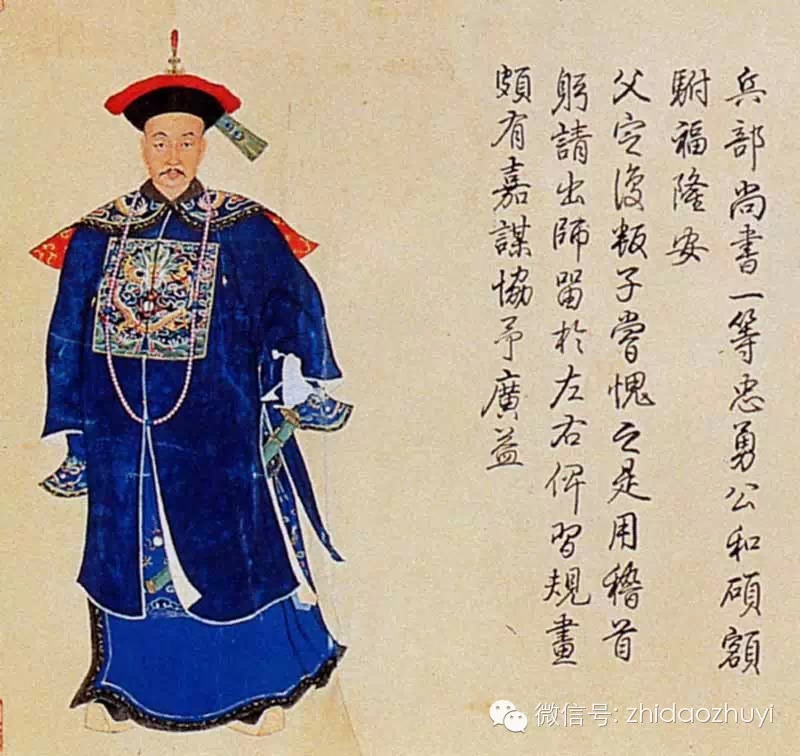 兵部尚書一等忠勇公和碩額
駙福隆安
父定復叛子嘗愧之是用稽首
躬請出師留於左右俾習規畫
頗有嘉謀協予廣益
微信号: zhidaozhuyi